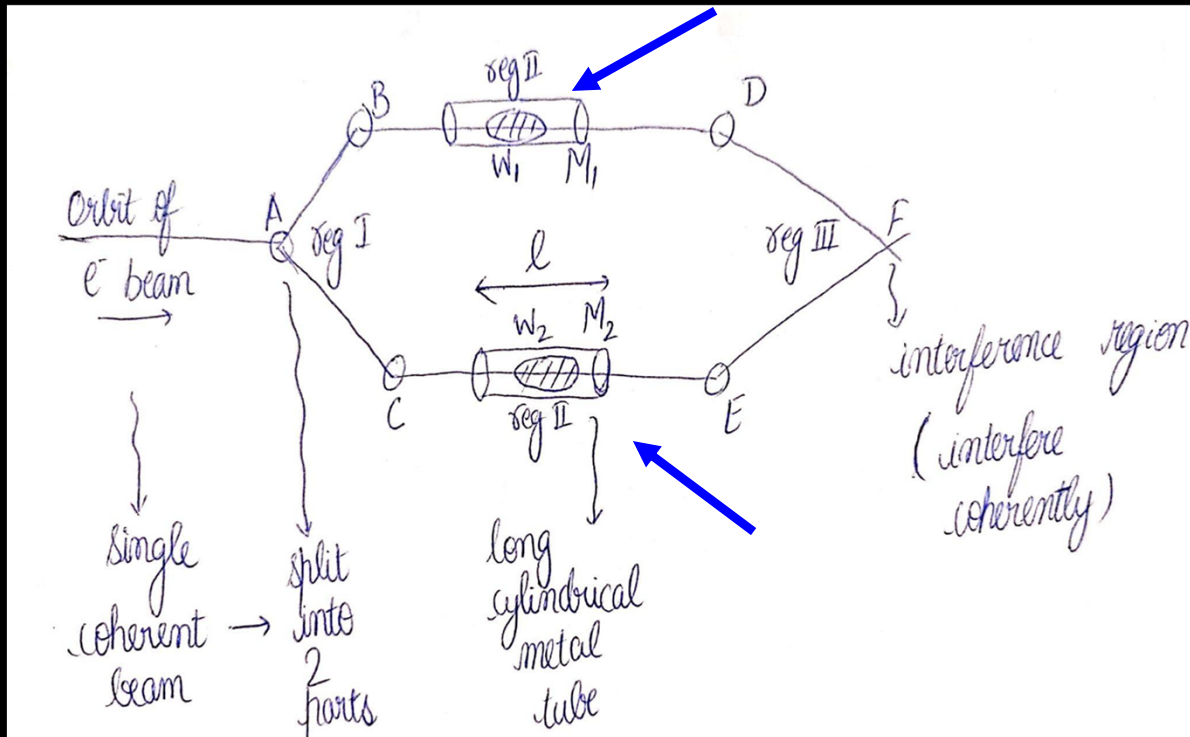 reg II
B
D
W₁ M₁
Orbit of
A
reg I
reg III
F
e⁻ beam
l
W₂ M₂
C
reg II
E
interference region
(interfere
coherently)
single
coherent →
beam
split
into
2
parts
long
cylindrical
metal
tube